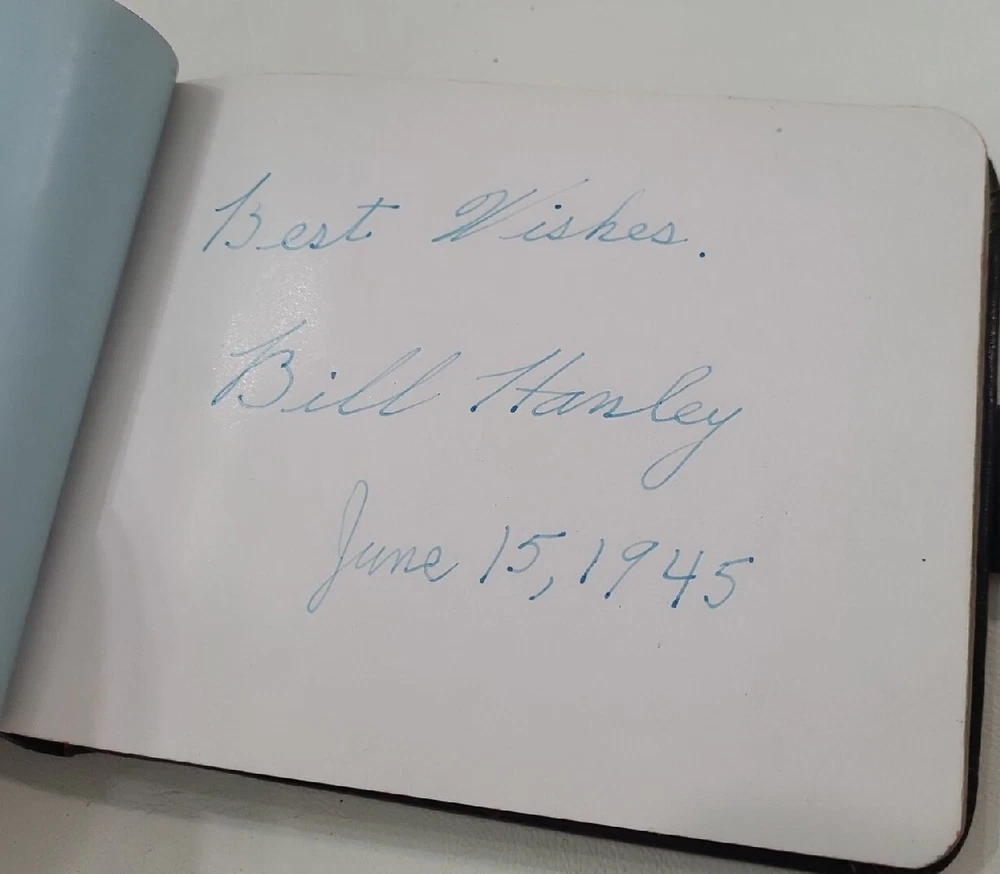 Best Wishes.
Bill Hanley
June 15, 1945